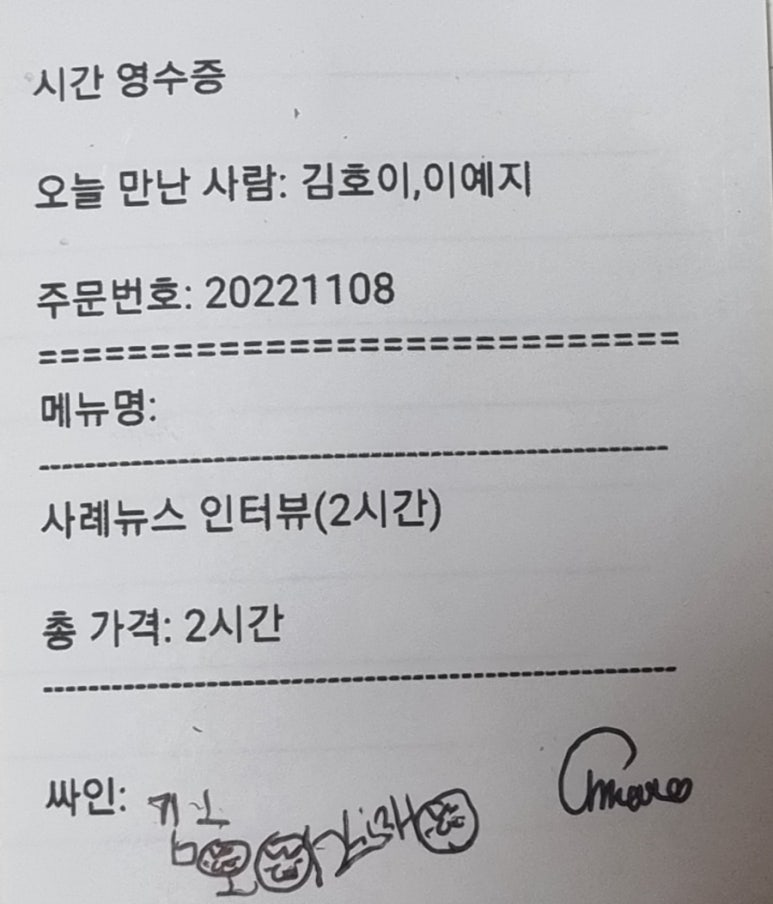 시간 영수증
오늘 만난 사람: 김호이,이예지
주문번호: 20221108
============================
메뉴명:
--------------------------------------------------
사례뉴스 인터뷰(2시간)
총 가격: 2시간
--------------------------------------------------
싸인: